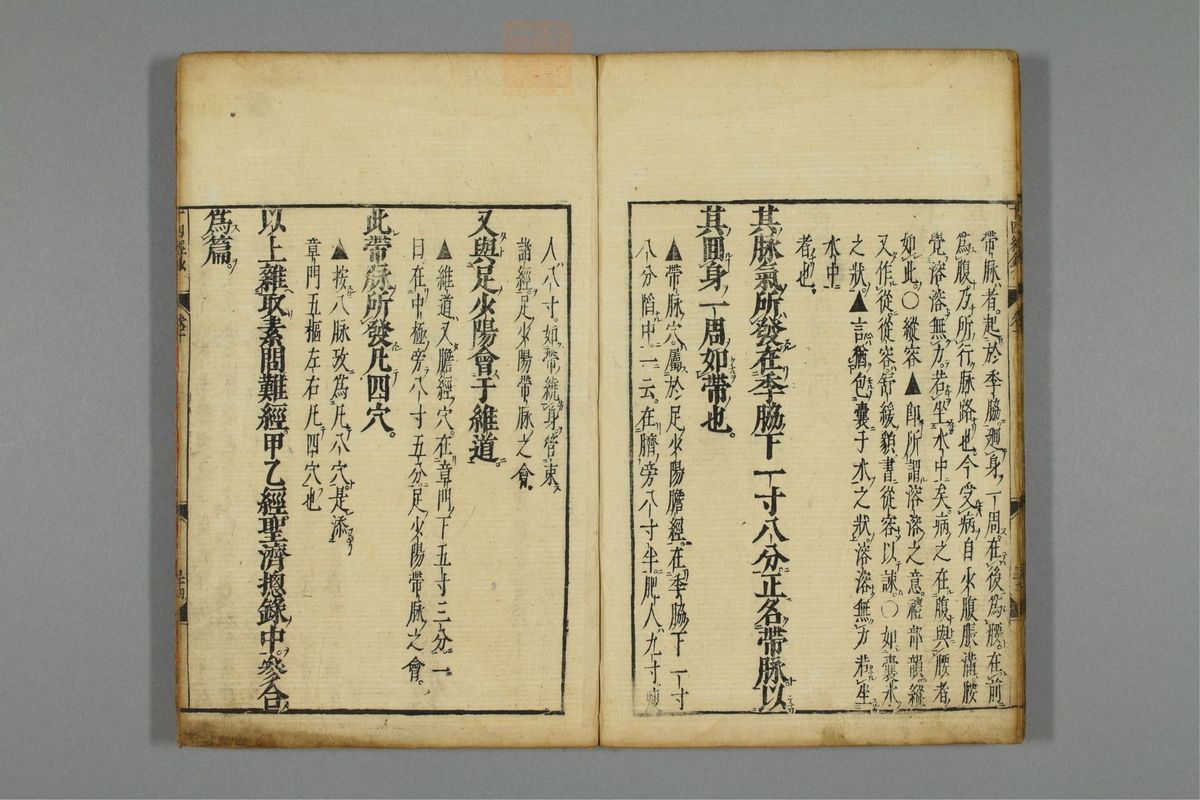 帶脉者起於季脇廻身一周在後爲腰在前
爲腹乃所行脉路也今受病自少腹脹滿腰
覺溶溶無力若坐水中矣病之在腹與腰者
如此○縱容▲即所謂溶溶之意禮部韻縱
又作從從容舒緩貌書從容以諫○如囊水
之狀▲言猶包囊于水之狀溶溶無力若坐
水中
者也
其脉氣所發在季脇下一寸八分正名帶脉以
其回身一周如帶也
▲帶脉穴屬於足少陽膽經在季脇下一寸
八分陷中一云在臍旁八寸半肥人九寸
人八寸如帶繞身管束
諸經足少陽帶脉之會
又與足少陽會于維道
▲維道又膽經穴在章門下五寸三分一
曰在中極旁八寸五分足少陽帶脉之會
此帶脉所發凡四穴
▲按八脉攷爲凡八穴是添
章門五樞左右凡四穴也
以上雜取素問難經甲乙經聖濟摠錄中參合
爲篇